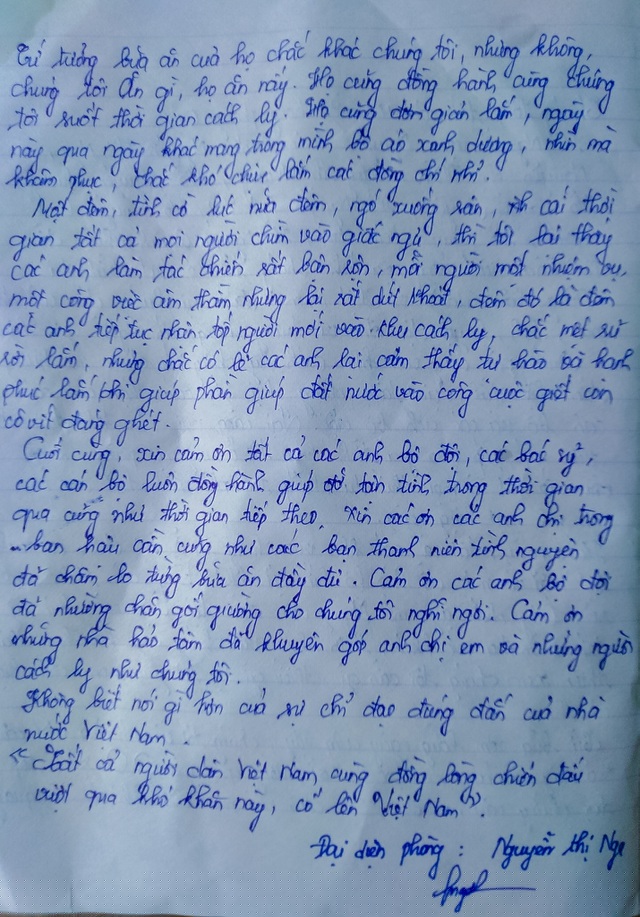 Cứ tưởng bữa ăn của họ chắc khác chúng tôi, nhưng không,
chúng tôi ăn gì, họ ăn nấy. Họ cũng đồng hành cùng chúng
tôi suốt thời gian cách ly. Họ cũng đơn giản lắm, ngày
này qua ngày khác mang trong mình bộ áo xanh dương, nhìn mà
khâm phục, chắc khó chịu lắm các đồng chí nhỉ.
Một đêm, tình cờ lúc nửa đêm, ngó xuống sân, cái thời
gian tất cả mọi người chìm vào giấc ngủ, thì tôi lại thấy
các anh làm tác chiến rất bận rộn, mỗi người một nhiệm vụ,
một công việc âm thầm nhưng lại rất dứt khoát, đêm đó là đêm
các anh tiếp tục nhận tốp người mới vào khu cách ly, chắc mệt
rồi lắm, nhưng chắc có lẽ các anh lại cảm thấy tự hào và hạnh
phúc lắm khi giúp phần giúp đất nước vào công cuộc giết con
cô vít đáng ghét.
Cuối cùng, xin cảm ơn tất cả các anh bộ đội, các bác sỹ,
các cán bộ luôn đồng hành giúp đỡ tận tình trong thời gian
qua cũng như thời gian tiếp theo. Xin các ơn các anh chị trong
ban hậu cần cũng như các bạn thanh niên tình nguyện
đã chăm lo từng bữa ăn đầy đủ. Cảm ơn các anh bộ đội
đã nhường chăn gối giường cho chúng tôi nghỉ ngơi. Cảm ơn
những nhà hảo tâm đã khuyên góp anh chị em và những người
cách ly như chúng tôi.
Không biết nói gì hơn của sự chỉ đạo đúng đắn của nhà
nước Việt Nam.
"Tất cả người dân Việt Nam cùng đồng lòng chiến đấu
vượt qua khó khăn này, cố lên Việt Nam".
Đại diện phòng: Nguyễn Thị Nga